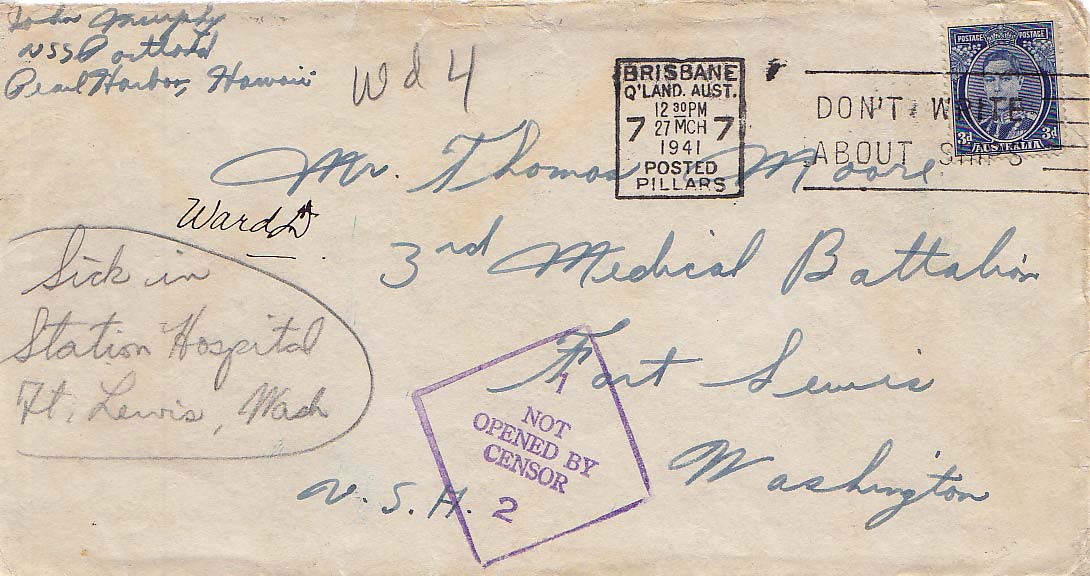 John Murphy
USS Portland
Pearl Harbor, Hawaii
Wd 4
BRISBANE
Q'LAND. AUST.
12 30PM
7 27 MCH 7
1941
POSTED
PILLARS
DON'T WRITE
ABOUT SHIPS
POSTAGE POSTAGE
3d 3d
AUSTRALIA
Mr. Thomas Moore
Ward
3rd Medical Battalion
Fort Lewis
Washington
U.S.A.
Sick in
Station Hospital
Ft. Lewis, Wash
1
NOT
OPENED BY
CENSOR
2